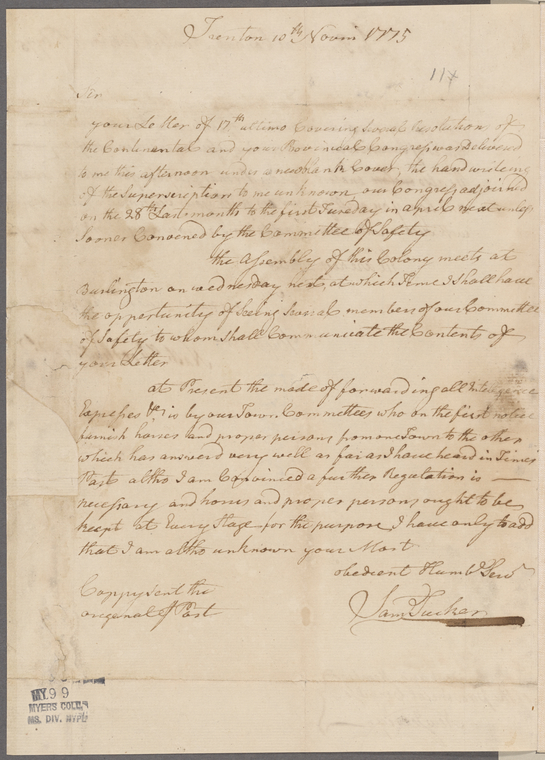 Trenton 10th Novm 1775
117
Sir
your Letter of 17th ultimo Covering Several Resolutions of
the Continental and your Provincial Congress was Delivered
to me this afternoon under a new blank Cover, the hand writeing
of the Superscription to me unknown our Congress adjourned
on the 28th Last month to the first Tuesday in april next unless
sooner Convened by the Committee of Safety
the Assembly of this Colony meets at
Burlington on wednesday next at which Time I Shall have
the oppertunity of Seeing Several members of our Committee
of Safety to whom Shall Communicate the Contents of
your Letter
at Present the mode of forwarding all Intelligence
Expresses &c is by our Town Committees who on the first notice
furnish horses and proper persons from one Town to the other
which has answerd very well as far as I have heard in Times
Past altho I am Convinced a further Regulation is
necessary and horses and proper persons ought to be
keept at Every Stage for the purpose, I have only to add
that I am altho unknown your Most
obedient Humbl Servt
Saml Tucker
Coppy sent the
origenal Post
MY. 99
MYERS COLL.
MS. DIV. NYPL